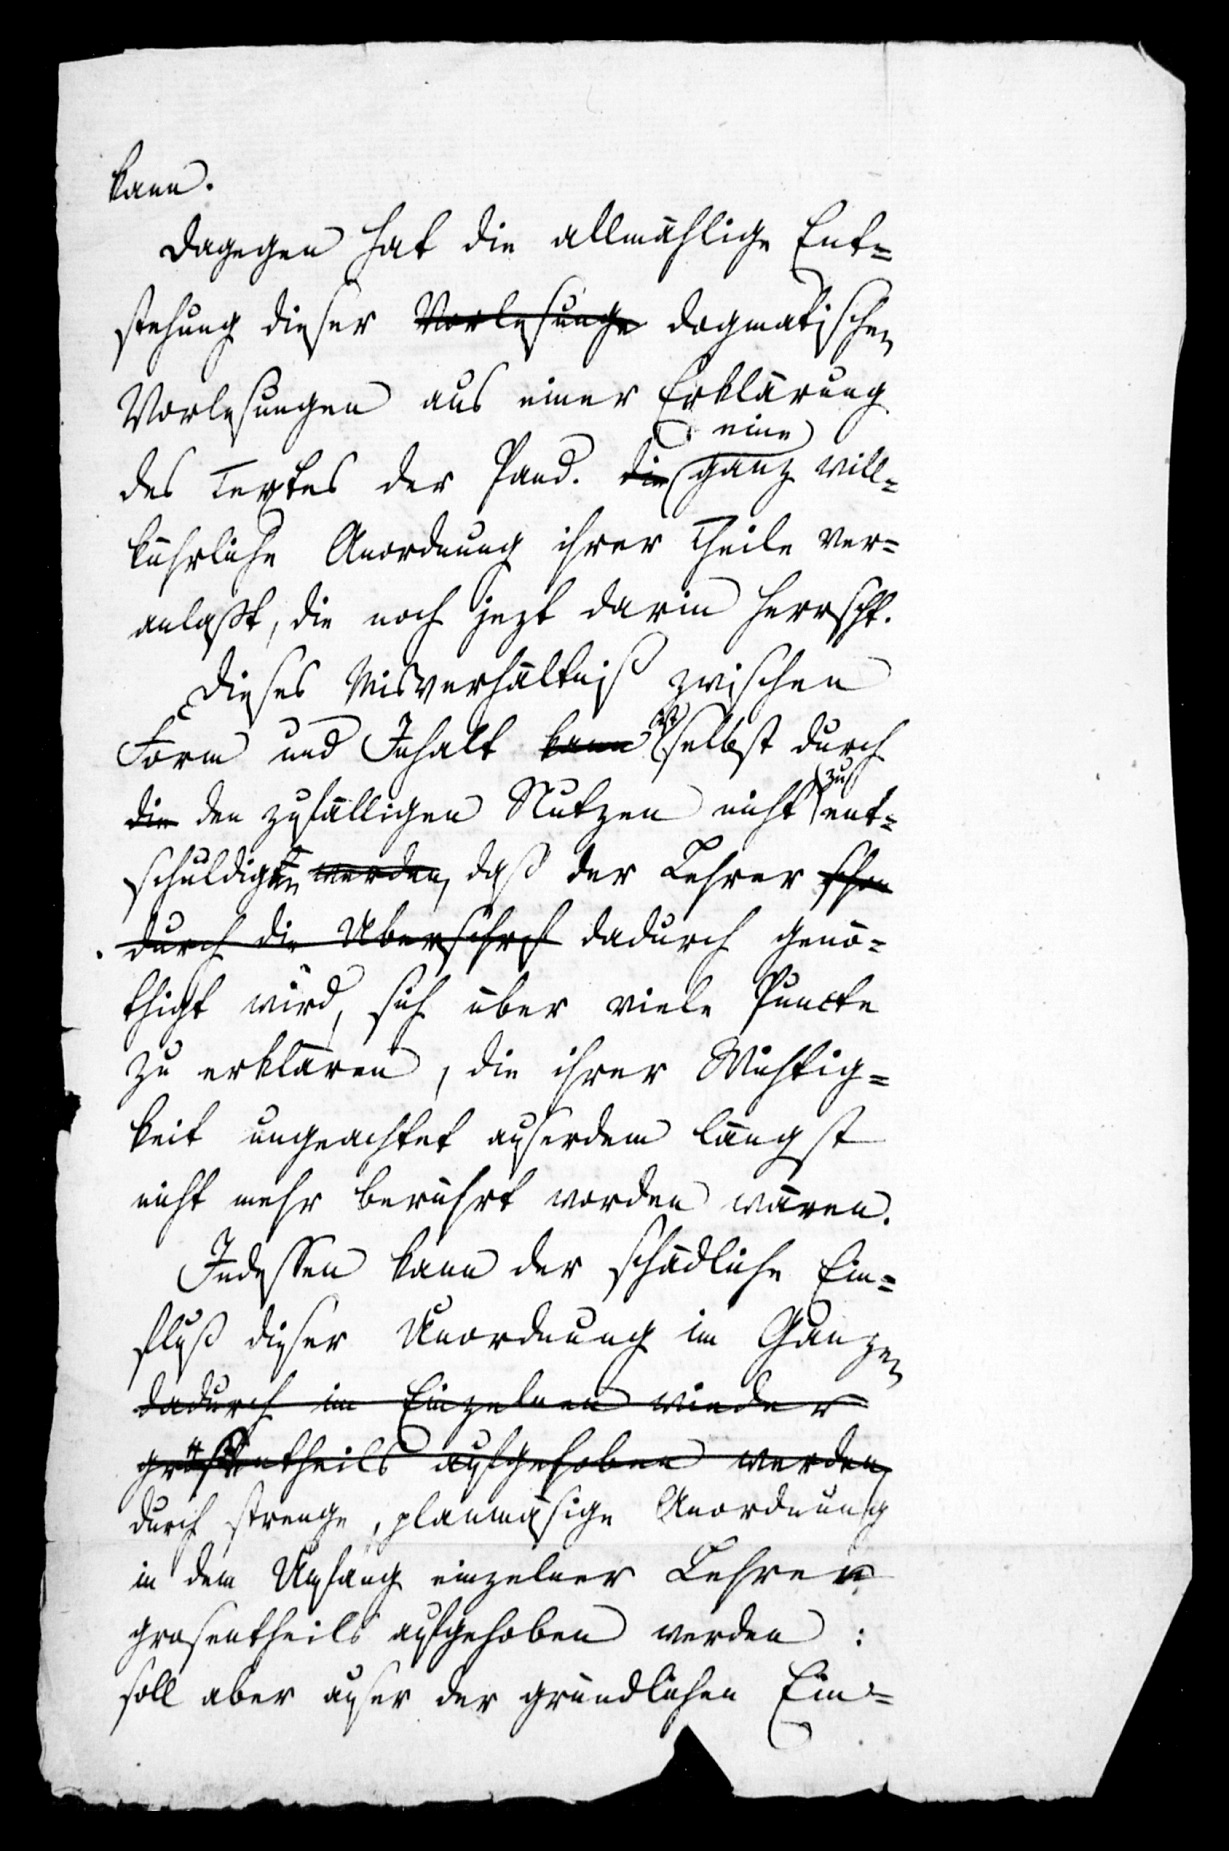 kann.
Dagegen hat die allmählige Ent=
stehung dieser Vorlesunge dogmatischen
Vorlesungen aus einer Erklärung
eine
des Textes der Pand. die ganz will=
kührliche Anordnung ihrer Theile ver=
anlaßt, die noch jezt darin herrscht.
Dieses Misverhältniß zwischen
ist
Form und Inhalt kann selbst durch
zu
die den zufälligen Nutzen nicht ent=
schuldigen werden, daß der Lehrer schon
durch die Überschrift dadurch genö=
thigt wird, sich über viele Puncte
zu erklären, die ihrer Wichtig=
keit ungeachtet auserdem längst
nicht mehr berührt worden wären.
Indessen kann der schädliche Ein=
fluß dieser Unordnung im Ganzen
dadurch im Einzelnen wieder
größtentheils aufgehoben werden
durch strenge, planmäsige Anordnung
in dem Umfang einzelner Lehren
grosentheils aufgehoben werden :
soll aber auser der gründlichen Ein=